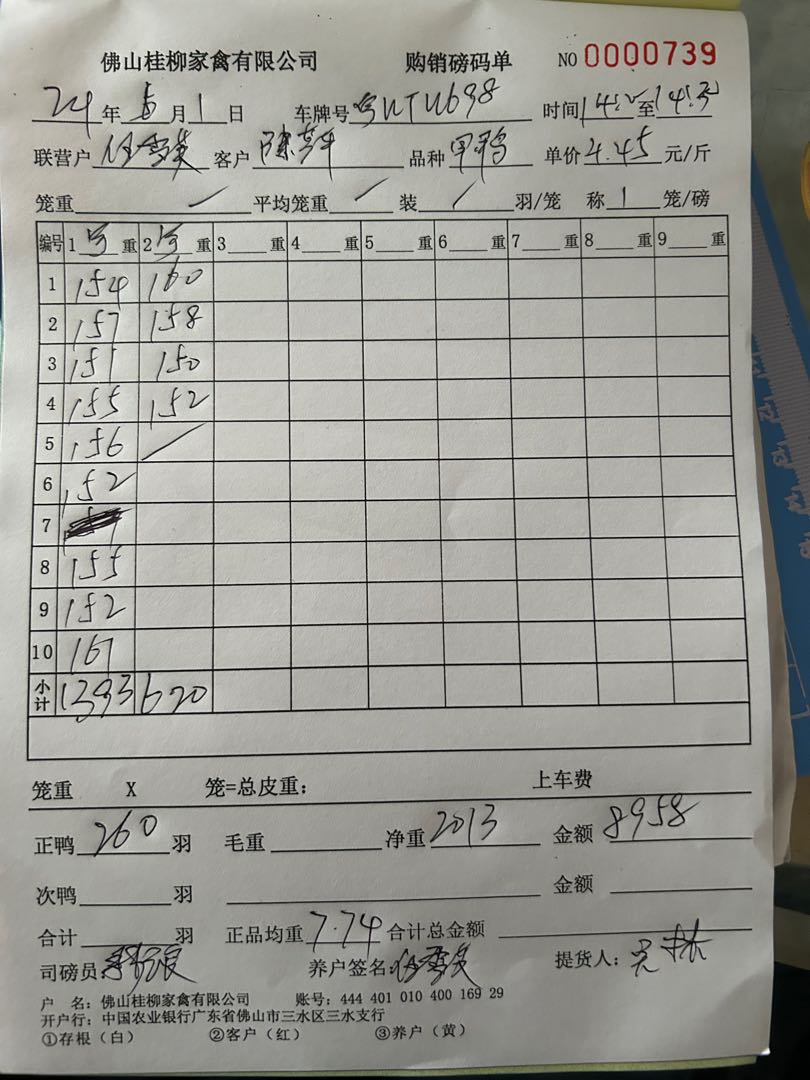 佛山桂柳家禽有限公司 购销磅码单 NO 0000739
24年5月1日 车牌号 粤UTU698 时间 14:2 至 14:3
联营户 伍雪英 客户 品种 甲鸭 单价 4.45 元/斤
笼重 / 平均笼重 / 装 / 羽/笼 称 1 笼/磅
编号 1 与 重 2 与 重 3 重 4 重 5 重 6 重 7 重 8 重 9 重
1 154 160
2 157 158
3 151 150
4 155 152
5 156 /
6 152
7
8 155
9 152
10 161
小计 1393 620
笼重 X 笼=总皮重: 上车费
正鸭 260 羽 毛重 净重 2013 金额 8958
次鸭 羽 金额
合计 羽 正品均重 7.74 合计总金额
司磅员: 养户签名: 伍雪英 提货人:
户 名: 佛山桂柳家禽有限公司 账号: 444 401 010 400 169 29
开户行: 中国农业银行广东省佛山市三水区三水支行
①存根(白) ②客户(红) ③养户(黄)